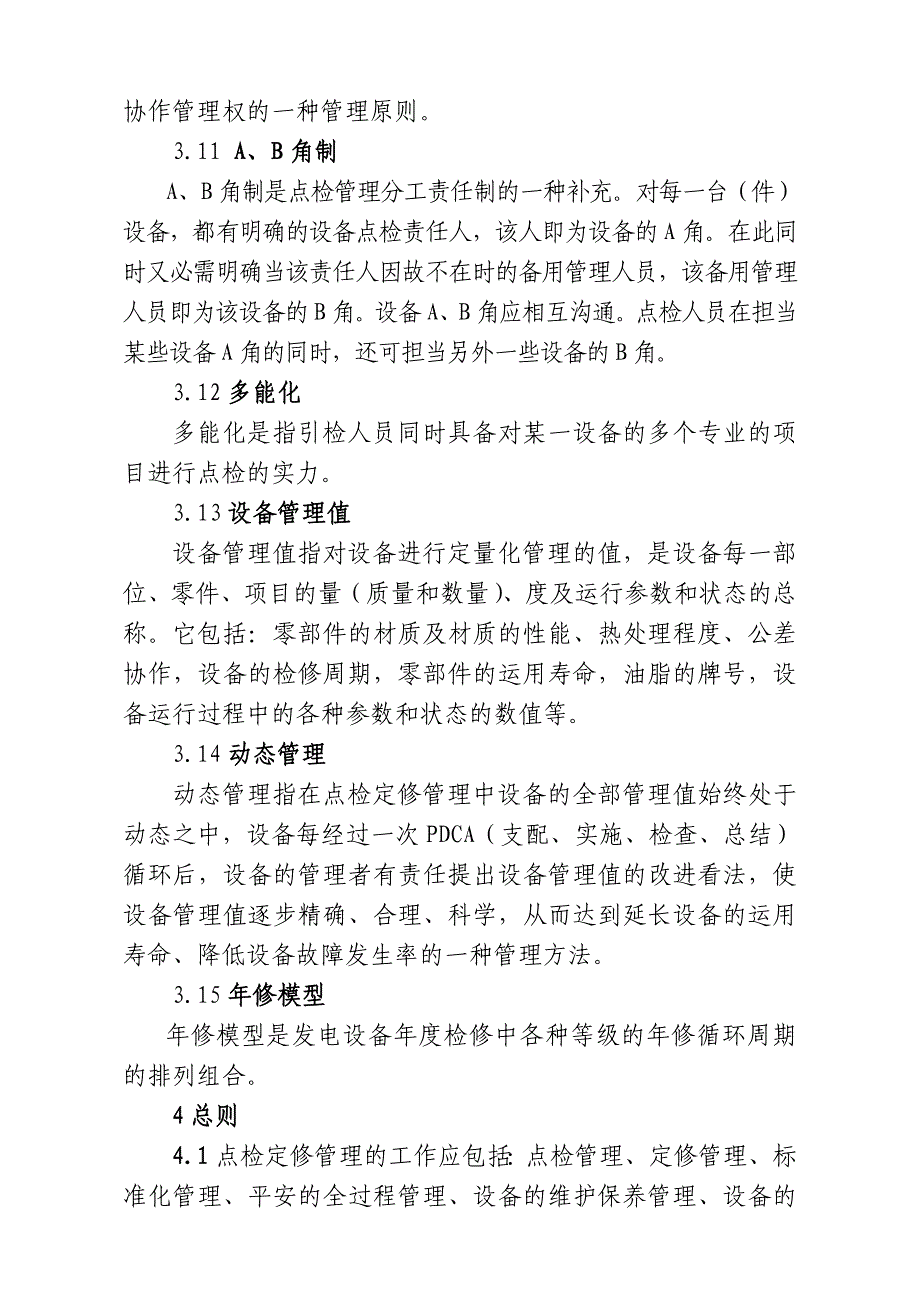 协作管理权的一种管理原则。
3.11 A、B角制
A、B角制是点检管理分工责任制的一种补充。对每一台（件）
设备，都有明确的设备点检责任人，该人即为设备的A角。在此同
时又必需明确当该责任人因故不在时的备用管理人员，该备用管理
人员即为该设备的B角。设备A、B角应相互沟通。点检人员在担当
某些设备A角的同时，还可担当另外一些设备的B角。
3.12 多能化
多能化是指引检人员同时具备对某一设备的多个专业的项
目进行点检的实力。
3.13 设备管理值
设备管理值指对设备进行定量化管理的值，是设备每一部
位、零件、项目的量（质量和数量）、度及运行参数和状态的总
称。它包括：零部件的材质及材质的性能、热处理程度、公差
协作，设备的检修周期，零部件的运用寿命，油脂的牌号，设
备运行过程中的各种参数和状态的数值等。
3.14 动态管理
动态管理指在点检定修管理中设备的全部管理值始终处于
动态之中，设备每经过一次PDCA（支配、实施、检查、总结）
循环后，设备的管理者有责任提出设备管理值的改进看法，使
设备管理值逐步精确、合理、科学，从而达到延长设备的运用
寿命、降低设备故障发生率的一种管理方法。
3.15 年修模型
年修模型是发电设备年度检修中各种等级的年修循环周期
的排列组合。
4 总则
4.1 点检定修管理的工作应包括：点检管理、定修管理、标
准化管理、平安的全过程管理、设备的维护保养管理、设备的